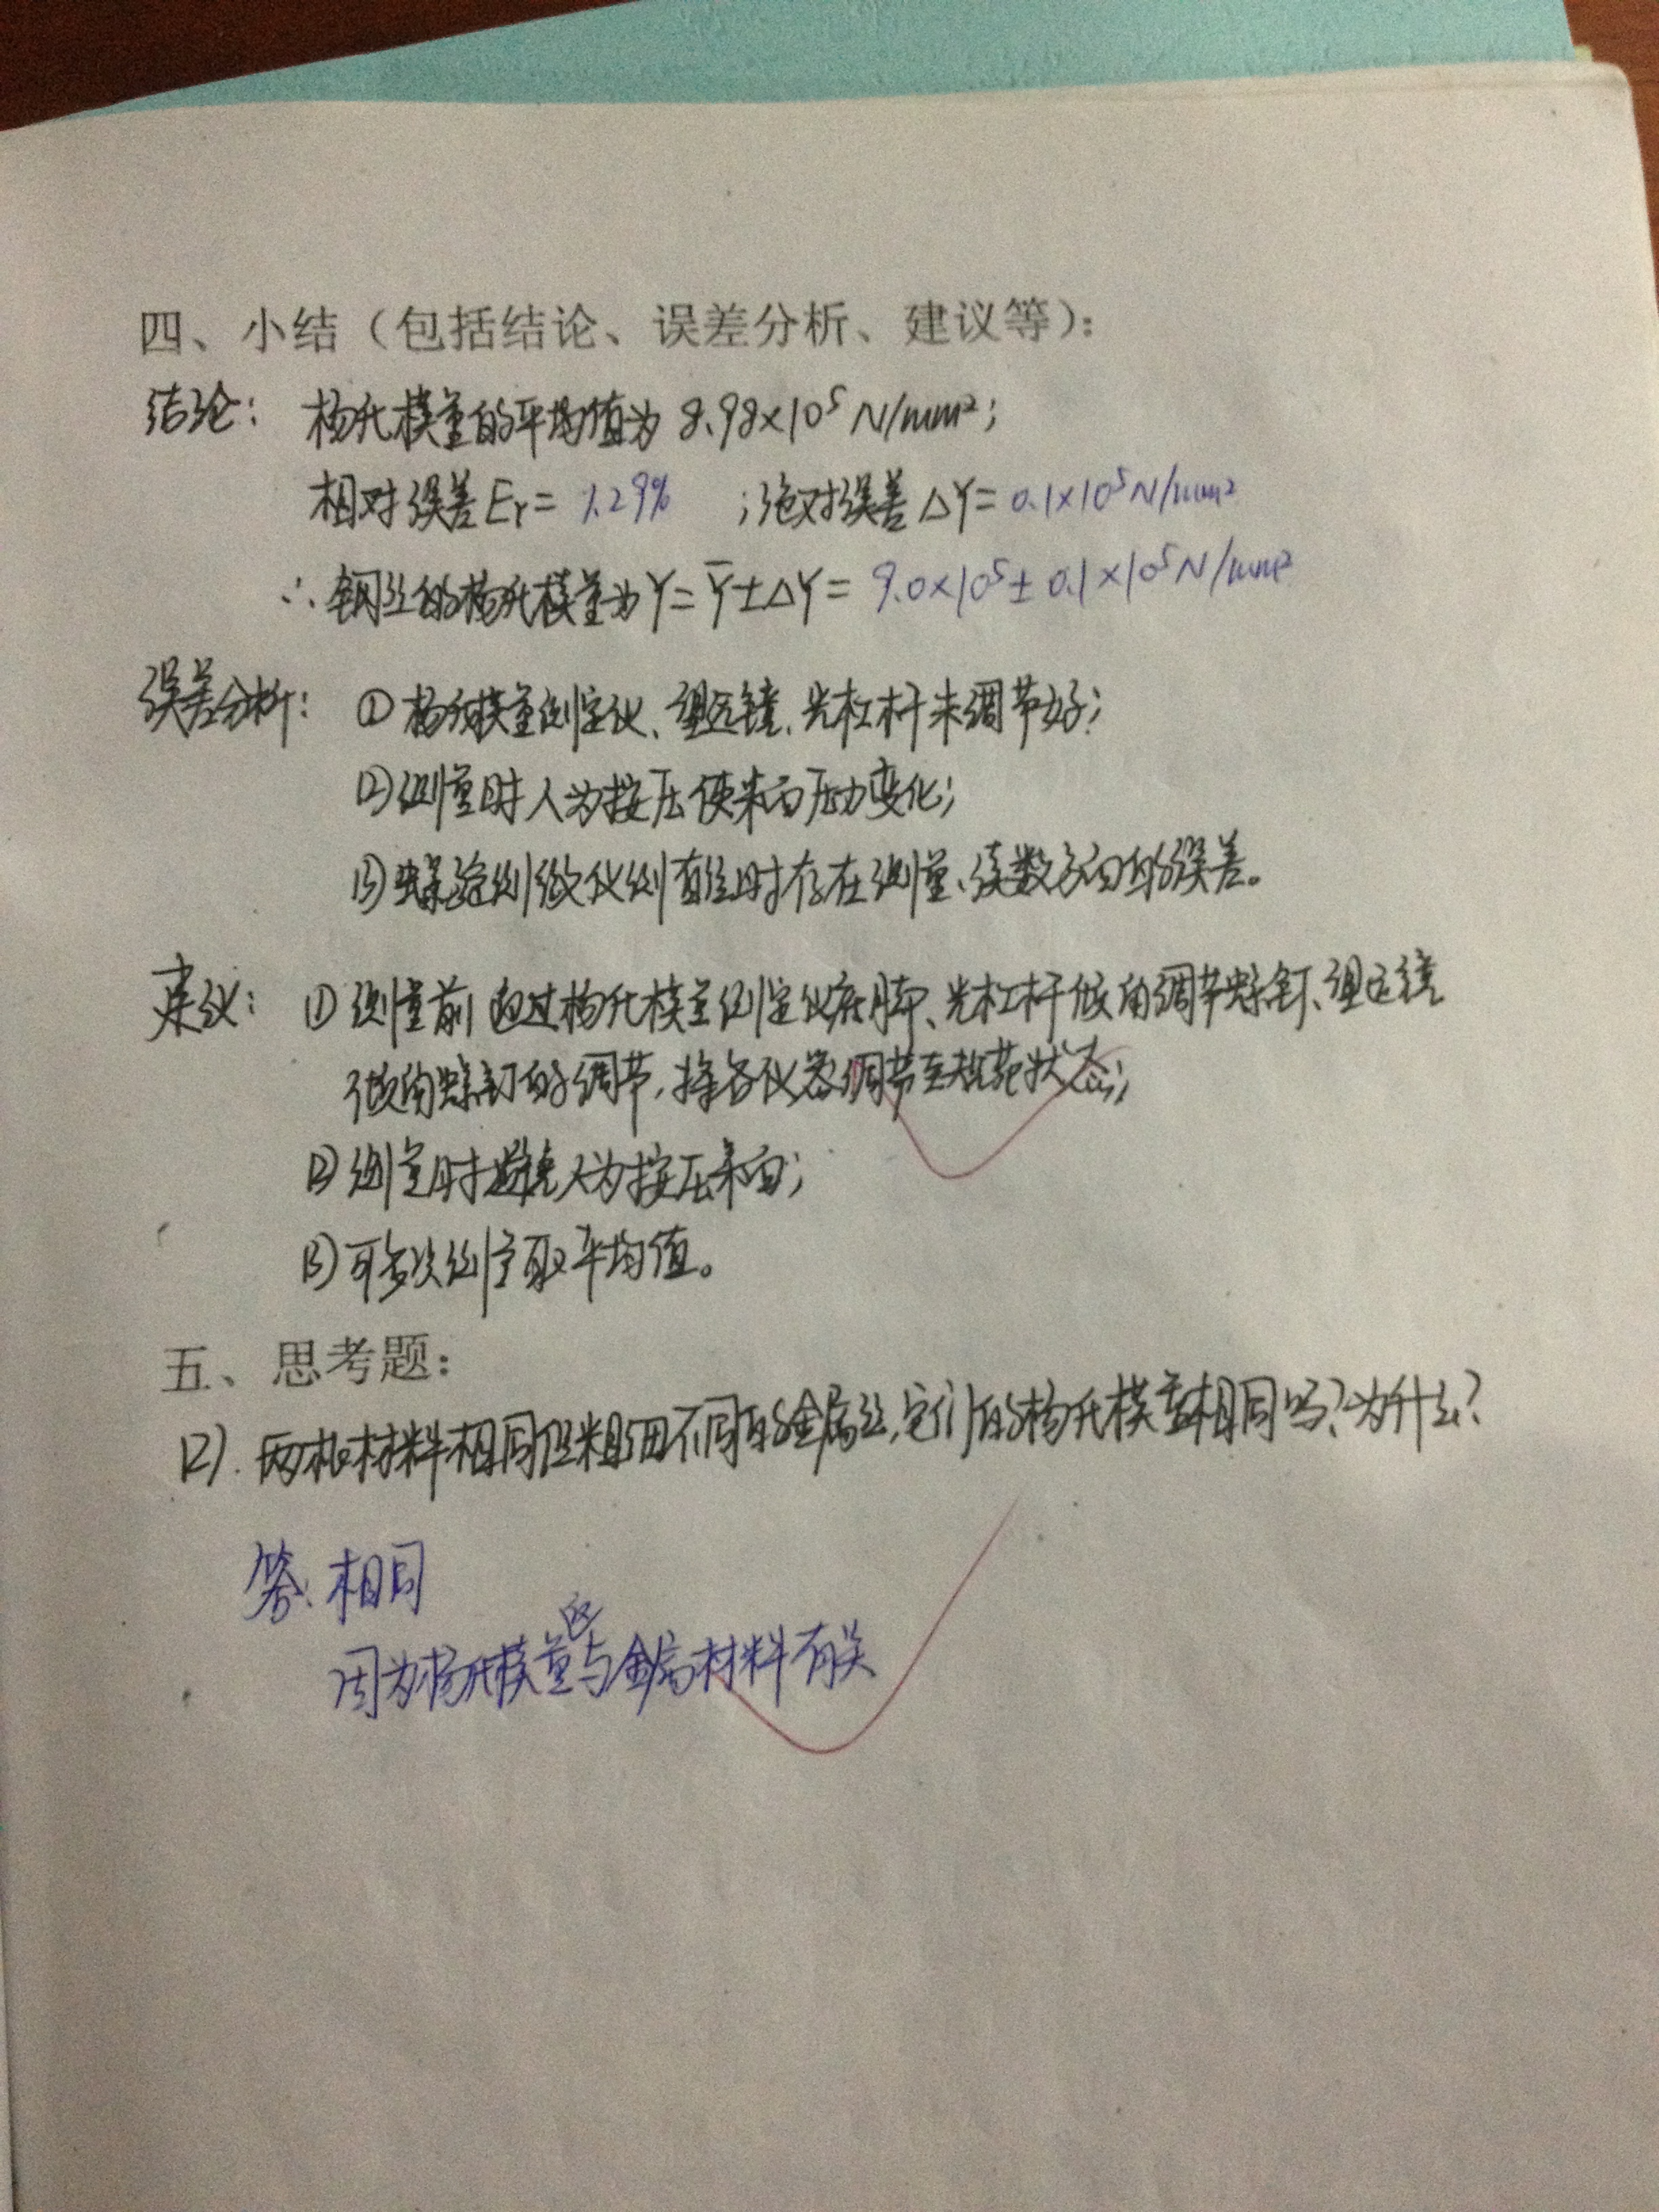 四、小结（包括结论、误差分析、建议等）：
结论： 杨氏模量的平均值为 8.98×10⁵ N/mm²；
相对误差Er= 1.29% ；绝对误差 △Y= 0.1×10⁵N/mm²
∴ 钢丝的杨氏模量为 Y=Y̅±△Y= 9.0×10⁵± 0.1×10⁵N/mm²
误差分析： ①杨氏模量测定仪、望远镜、光杠杆未调节好；
②测量时人为按压使桌面压力变化；
③螺旋测微仪测直径时存在测量、读数方面的误差。
建议： ①测量前通过杨氏模量测定仪底脚、光杠杆倾角调节螺钉、望远镜
倾角螺钉的调节，将各仪器调节至规范状态；
②测量时避免人为按压桌面；
③可多次测量取平均值。
五、思考题：
(2). 两根材料相同但粗细不同的金属丝，它们的杨氏模量相同吗？为什么？
答：相同
因为杨氏模量只与金属材料有关